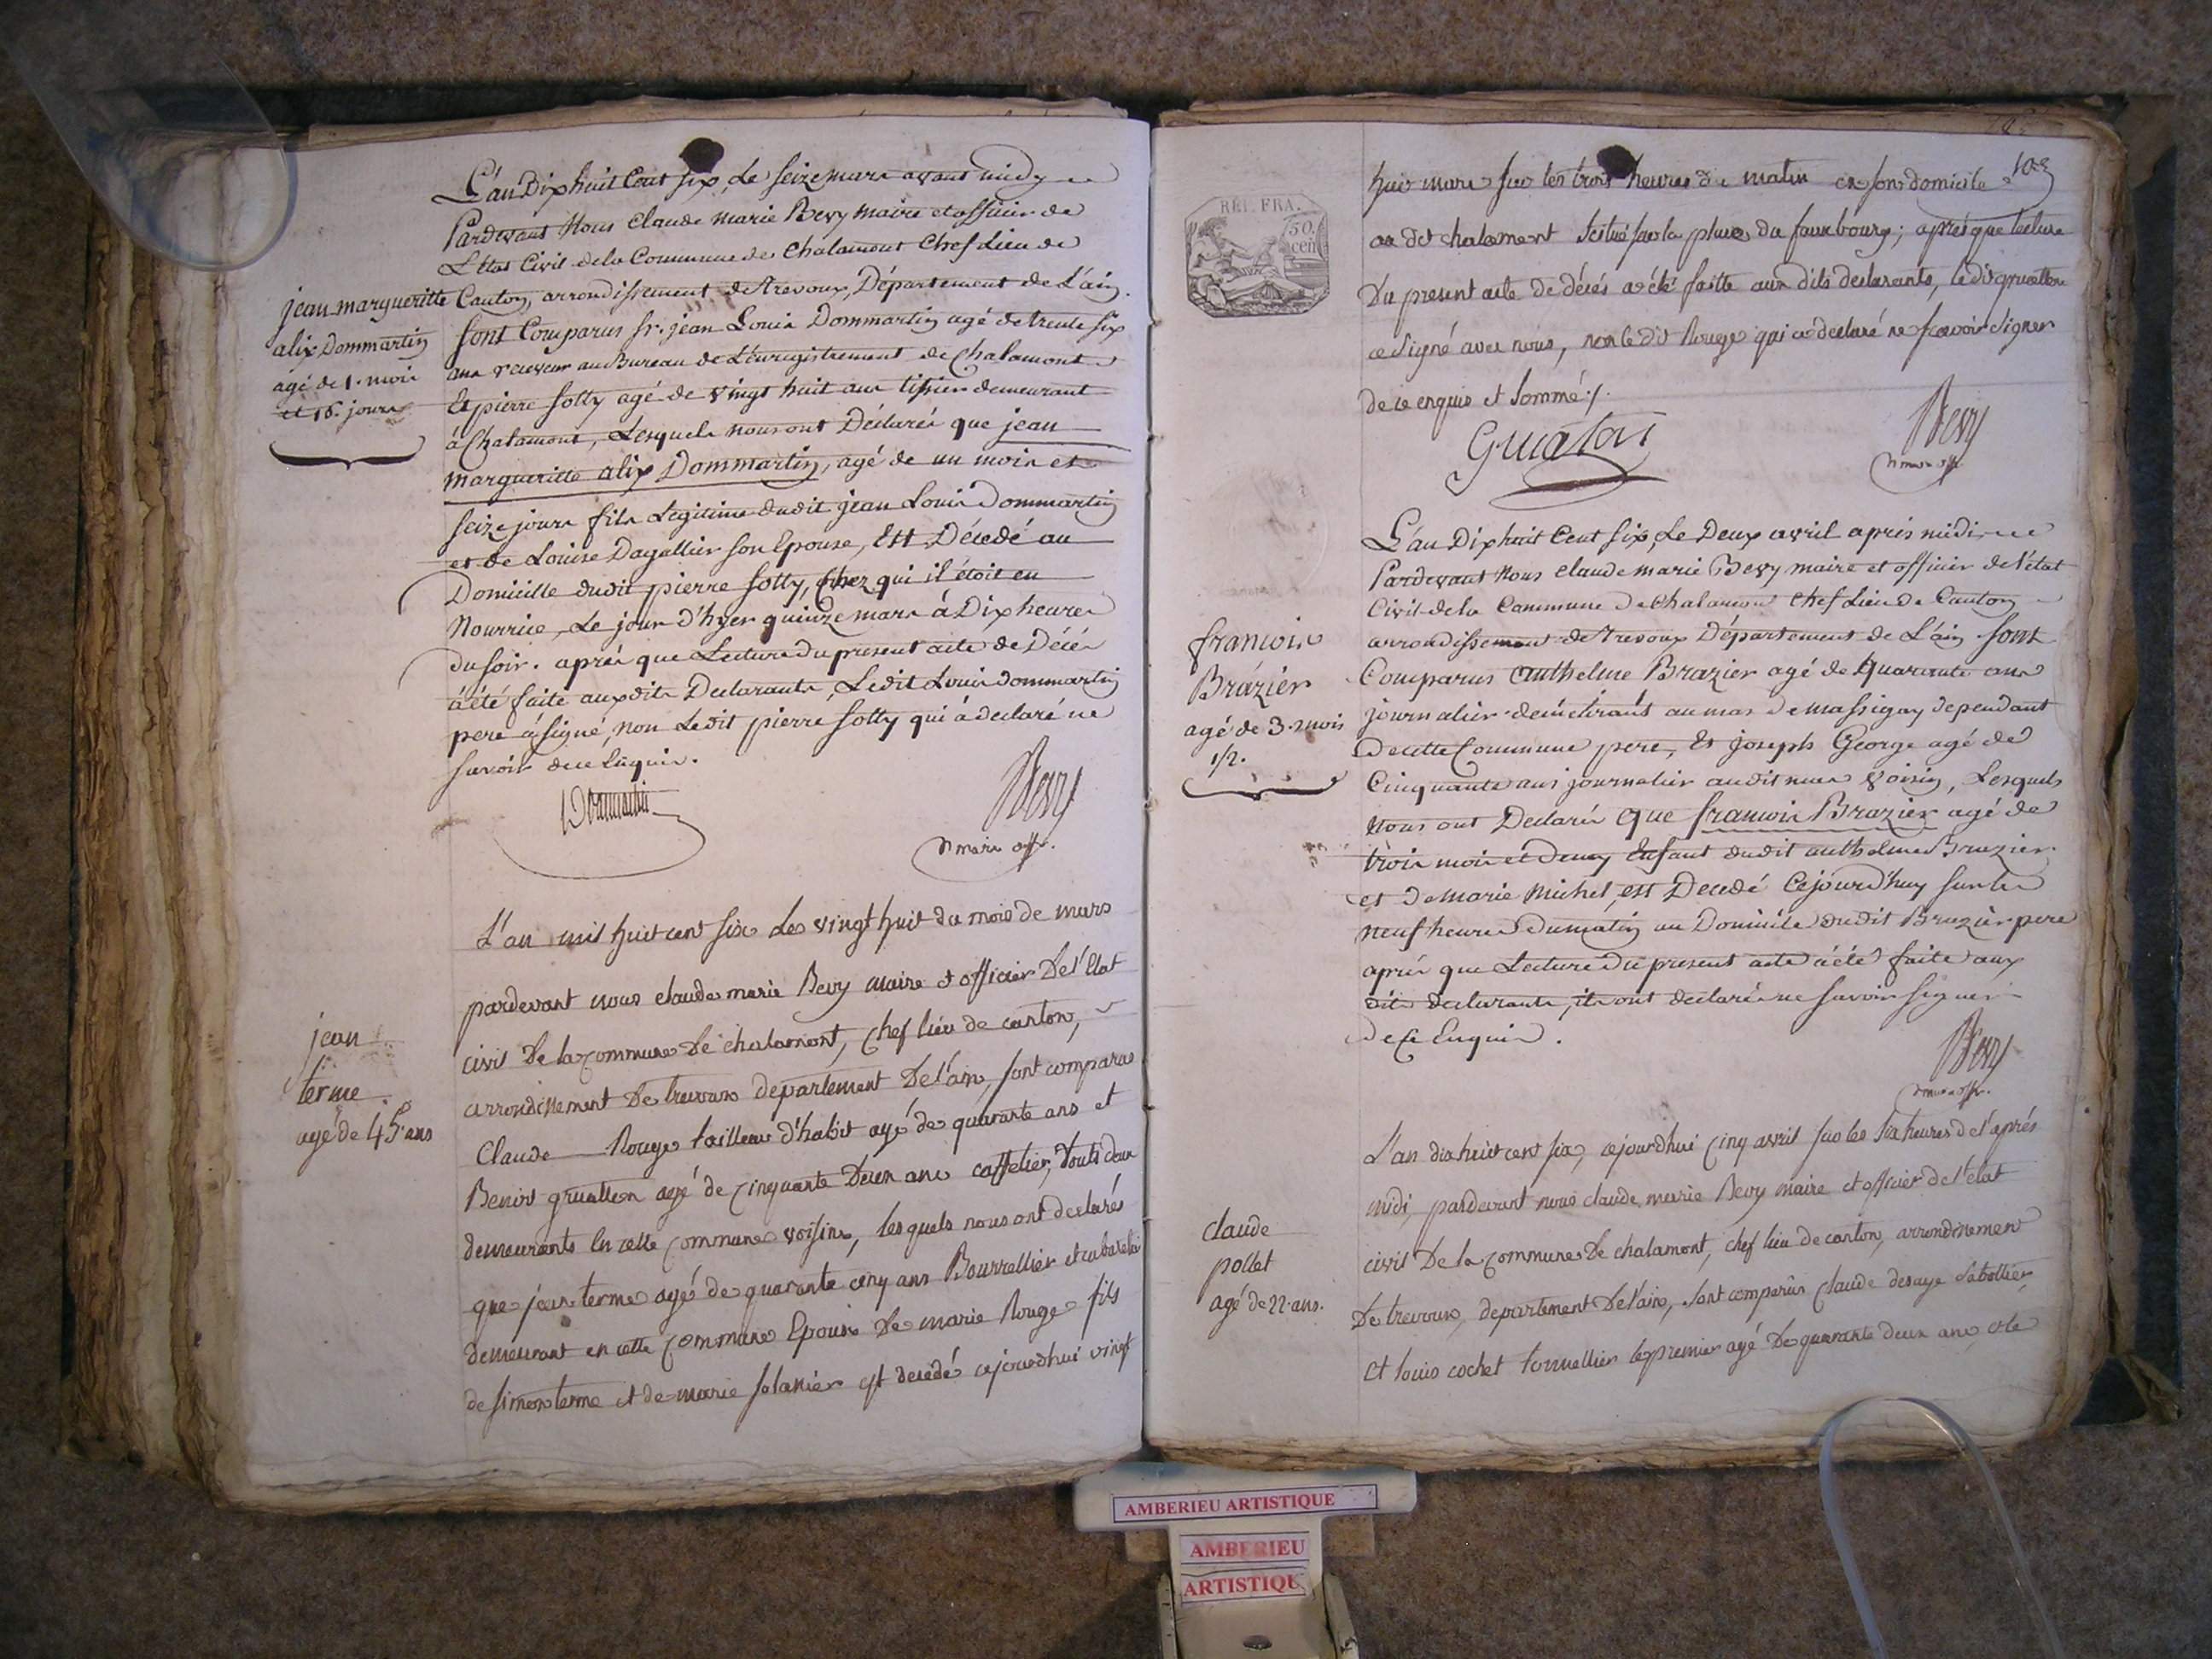 L'an Dix huit Cent six, Le seize mars avant midy
Pardevant Nous Claude Marie Bevy Maire et officier de
L'Etat Civil de la Commune de Chalamont Chef Lieu de
Canton, arrondissement de Trevoux, Département de L'ain.
sont Comparus sr. jean Louis Dommartin agé de trente six
ans receveur au Bureau de L'enregistrement de Chalamont
Et pierre Solly agé de vingt huit ans tissier demeurant
à Chalamont, Lesquels nous ont Déclarés que jean
margueritte alix Dommartin, agé de un mois et
seize jours fils Legitime dudit jean Louis Dommartin
et de Louise Dagallier son Epouse, Est Décedé au
Domicille dudit pierre Solly, Chez qui il étoit en
Nourrice, Le jour d'hyer quinze mars à Dix heures
du soir. après que Lecture du present acte de Décés
à été faite auxdits Declarants, Ledit Louis Dommartin
pere à signé, non Ledit pierre Solly qui à declaré ne
savoir de ce Enquis.
jean margueritte
alix Dommartin
agé de 1. mois
et 16. jours
Dommartin
Bevy
maire off.
L'an mil huit cent six le vingt huit du mois de mars
pardevant nous claude marie Bevy maire et officier De l'Etat
civil De la commune De chalamont, chef lieu de canton,
arrondissement De trevoux departement De l'ain, sont comparus
Claude Rouge tailleur d'habit agé de quarante ans et
Benoit gruatton agé de cinquante Deux ans caffetier, touts deux
demeurants En cette commune voisins, lesquels nous ont declarés
que jean terme agé de quarante cinq ans Bourrellier et cabaretié
demeurant en cette commune Epoux De marie Rouge fils
de simon terme et de marie solanier est decedé cejourdhui vingt
jean
terme
agé de 45. ans
103
RÉP. FRA.
50.
cen.
huit mars sur les trois heures du matin en son domicile
au dit chalamont scitué sur la place du fauxbourg; après que lecture
Du present acte de décés a été faitte aux dits declarants, le dit gruatton
a signé avec nous, non le dit Rouge qui a declaré ne sçavoir signer
de ce enquis et sommé./.
Gruaton
Bevy
maire off.
L'an Dix huit Cent six, Le Deux avril après midi
Pardevant Nous Claude marie Bevy maire et officier de l'état
Civil de la Commune de Chalamon Chef Lieu de Canton
arrondissement de Trevoux Département de L'ain sont
Comparus Anthelme Brazier agé de Quarante ans
journalier demeurant au mas de massigny dependant
de cette Commune pere, Et joseph George agé de
Cinquante ans journalier audit mas voisin, Lesquels
nous ont Declarés que francois Brazier agé de
trois mois et Demy Enfant dudit anthelme Brazier
et de Marie Michel, est Decedé Cejourd'huy sur les
neuf heures du matin au Domicile dudit Brazier pere
après que Lecture du present acte à été faite aux
dits declarants, ils ont declarés ne savoir signer
de Ce Enquis.
francois
Brazier
agé de 3. mois
1/2.
Bevy
maire off.
L'an dix huit cent six, cejourdhui cinq avril sur les six heures de l'aprés
midi, pardevant nous claude marie Bevy maire et officier de l'etat
civil De la commune De chalamont, chef lieu de canton, arrondissement
De trevoux, departement De l'ain, sont comparus claude desaye sabottier
et louis cochet tonnellier le premier agé De quarante deux ans, et le
claude
pollet
agé de 22. ans.
AMBERIEU ARTISTIQUE
AMBERIEU
ARTISTIQUE